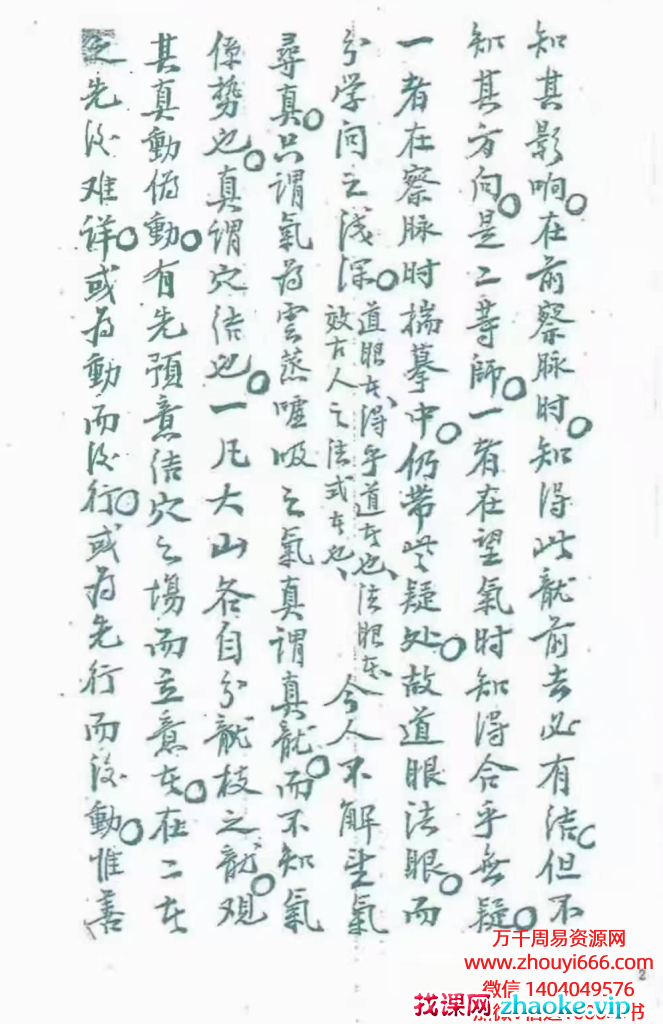 知其影响。在前察脉时。知得此龍前去必有结。但不
知其方向。是二等師。一者在望氣时知得合乎無疑。
一者在察脉时揣摹中。仍带些疑处。故道眼法眼。而
分学问之浅深。道眼者、得乎道者也、法眼者、
效古人之法式者也、
今人不解望氣
尋真。只谓氣为雲蒸嘘吸之氣真谓真龍。而不知氣
僚势也。真谓穴结也。一凡大山各自分龍枝之龍。观
其真動偽動。有先預意结穴之場而立意者。在二者
之先後难详。或为動而後行。或为先行而後動。惟善
2
万千周易资源网
www.zhouyi666.com
微信 1404049576
找课网zhaoke.vip